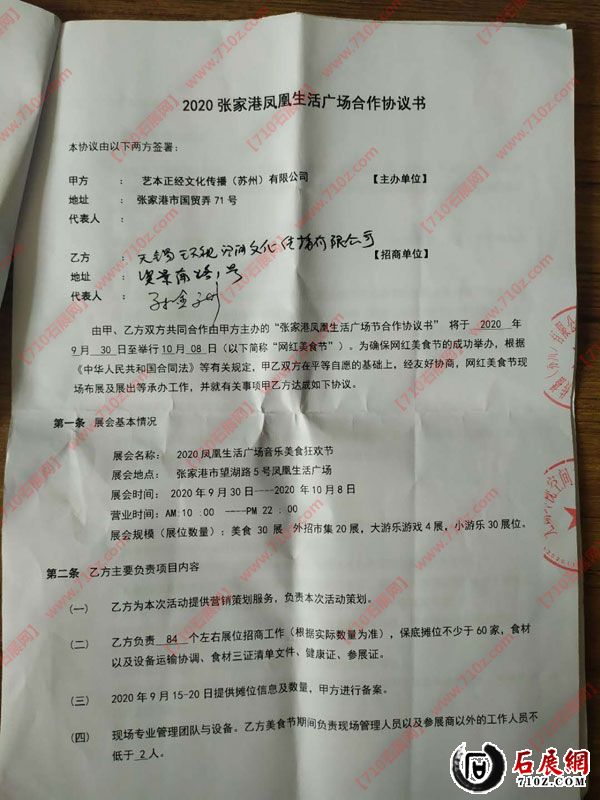 2020 张家港凤凰生活广场合作协议书
本协议由以下两方签署：
甲方 ： 艺本正经文化传播（苏州）有限公司 【主办单位】
地址 ： 张家港市国贸弄71号
代表人 ：
乙方 ： 无锡 空间文化传播有限公司 【招商单位】
地址 ： 景南路1号
代表人 ：
由甲、乙方双方共同合作由甲方主办的“张家港凤凰生活广场节合作协议书” 将于 2020 年
9月 30 日至举行10月08日（以下简称“网红美食节”）。为确保网红美食节的成功举办，根据
《中华人民共和国合同法》等有关规定，甲乙双方在平等自愿的基础上，经友好协商，网红美食节现
场布展及展出等承办工作，并就有关事项甲乙方达成如下协议。
第一条 展会基本情况
展会名称： 2020凤凰生活广场音乐美食狂欢节
展会地点： 张家港市望湖路5号凤凰生活广场
展会时间： 2020年9月30日----2020年10月8日
营业时间：AM:10 ：00 ----PM 22 ：00
展会规模（展位数量）：美食30展 外招市集20展，大游乐游戏4展，小游乐30展位。
第二条 乙方主要负责项目内容
（一） 乙方为本次活动提供营销策划服务，负责本次活动策划。
（二） 乙方负责 84 个左右展位招商工作（根据实际数量为准），保底摊位不少于60家，食材
以及设备运输协调、食材三证清单文件、健康证、参展证。
（三） 2020年9月15-20日提供摊位信息及数量，甲方进行备案。
（四） 现场专业管理团队与设备。乙方美食节期间负责现场管理人员以及参展商以外的工作人员不
低于 2 人。
【710石展网】
www.710z.com
石展網
710z.com